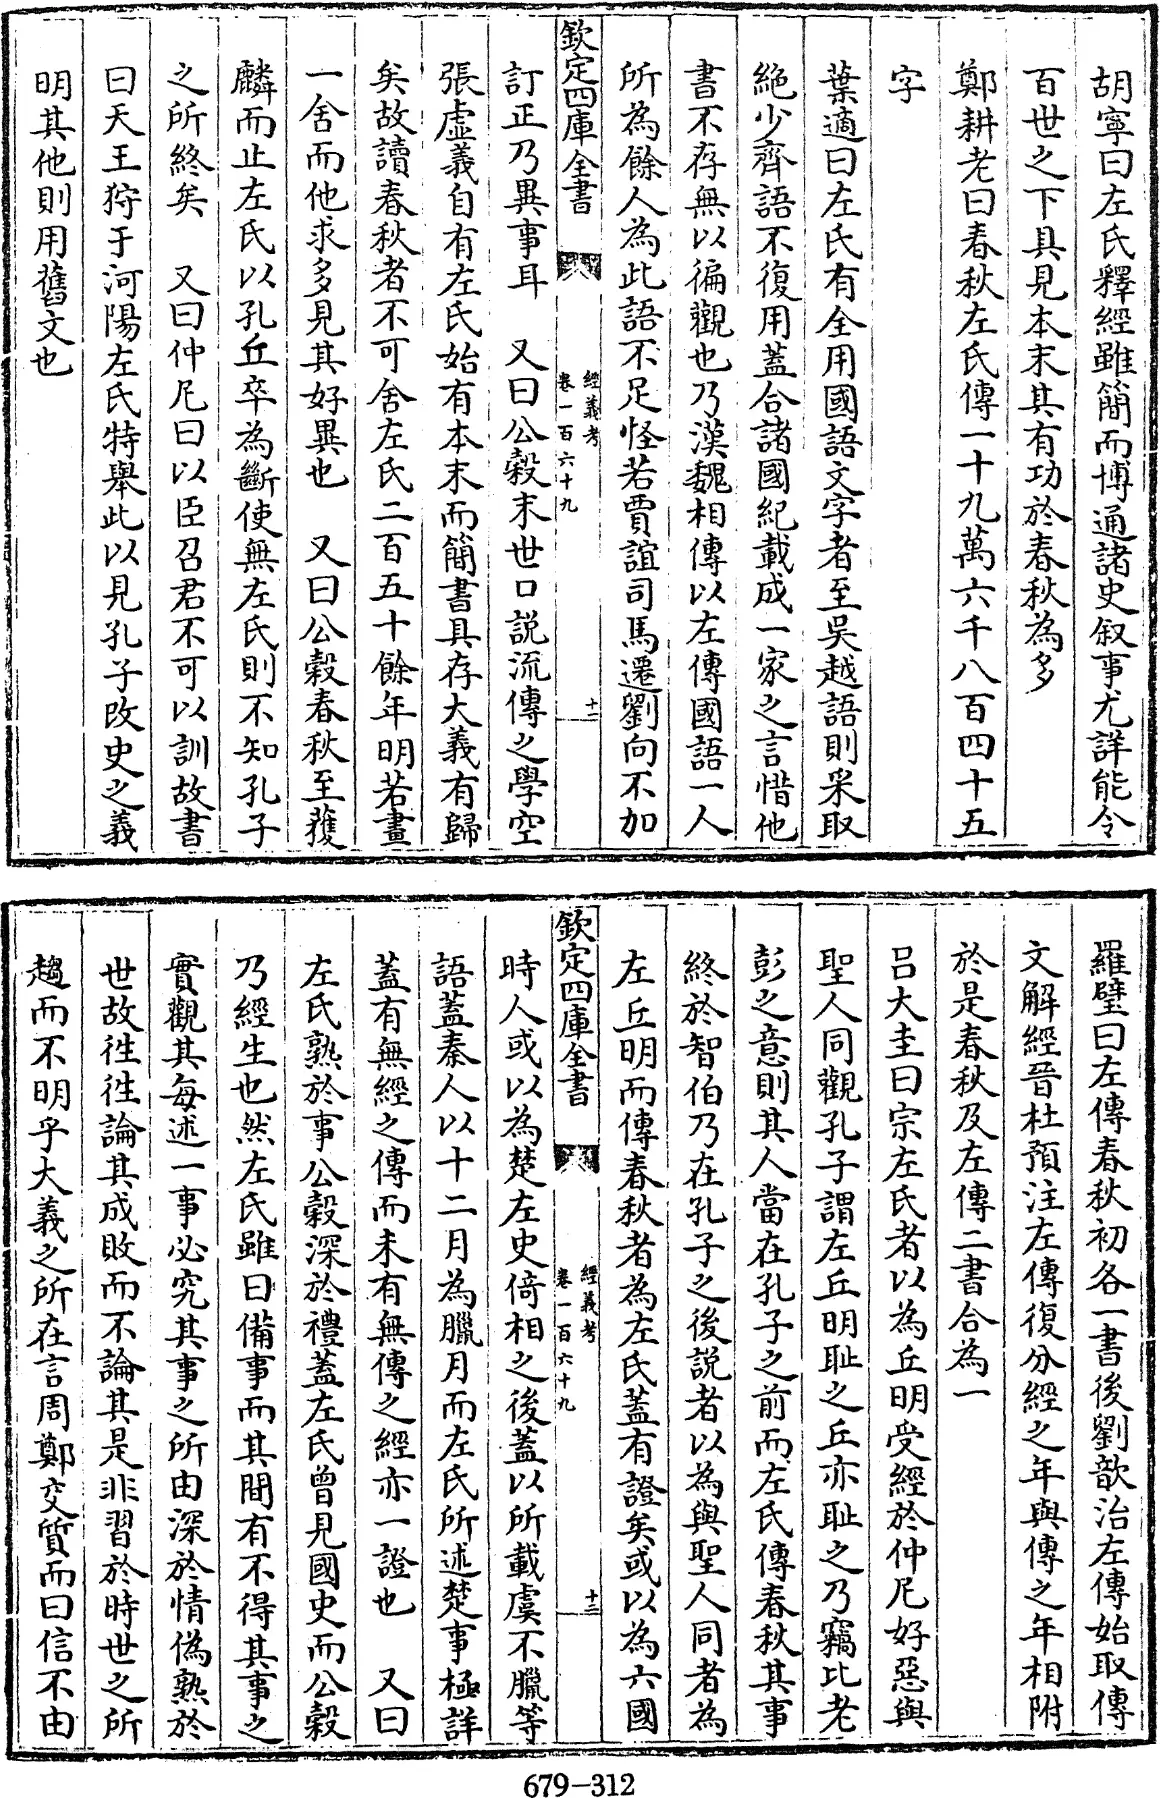 胡寧曰左氏釋經雖簡而博通諸史叙事尤詳能令
百世之下具見本末其有功於春秋為多
鄭耕老曰春秋左氏傳一十九萬六千八百四十五
字
葉適曰左氏有全用國語文字者至吳越語則采取
絶少齊語不復用蓋合諸國紀載成一家之言惜他
書不存無以徧觀也乃漢魏相傳以左傳國語一人
所為餘人為此語不足怪若賈誼司馬遷劉向不加
欽定四庫全書
經義考
卷一百六十九
十二
訂正乃異事耳　又曰公穀末世口説流傳之學空
張虚義自有左氏始有本末而簡書具存大義有歸
矣故讀春秋者不可舍左氏二百五十餘年明若畫
一舍而他求多見其好異也　又曰公穀春秋至獲
麟而止左氏以孔丘卒為斷使無左氏則不知孔子
之所終矣　又曰仲尼曰以臣召君不可以訓故書
曰天王狩于河陽左氏特舉此以見孔子改史之義
明其他則用舊文也
羅璧曰左傳春秋初各一書後劉歆治左傳始取傳
文解經晉杜預注左傳復分經之年與傳之年相附
於是春秋及左傳二書合為一
呂大圭曰宗左氏者以為丘明受經於仲尼好惡與
聖人同觀孔子謂左丘明恥之丘亦恥之乃竊比老
彭之意則其人當在孔子之前而左氏傳春秋其事
終於智伯乃在孔子之後説者以為與聖人同者為
左丘明而傳春秋者為左氏蓋有證矣或以為六國
欽定四庫全書
經義考
卷一百六十九
十三
時人或以為楚左史倚相之後蓋以所載虞不臘等
語蓋秦人以十二月為臘月而左氏所述楚事極詳
蓋有無經之傳而未有無傳之經亦一證也　又曰
左氏熟於事公穀深於禮蓋左氏曾見國史而公穀
乃經生也然左氏雖曰備事而其間有不得其事之
實觀其每述一事必究其事之所由深於情偽熟於
世故往往論其成敗而不論其是非習於時世之所
趨而不明乎大義之所在言周鄭交質而曰信不由
679-312